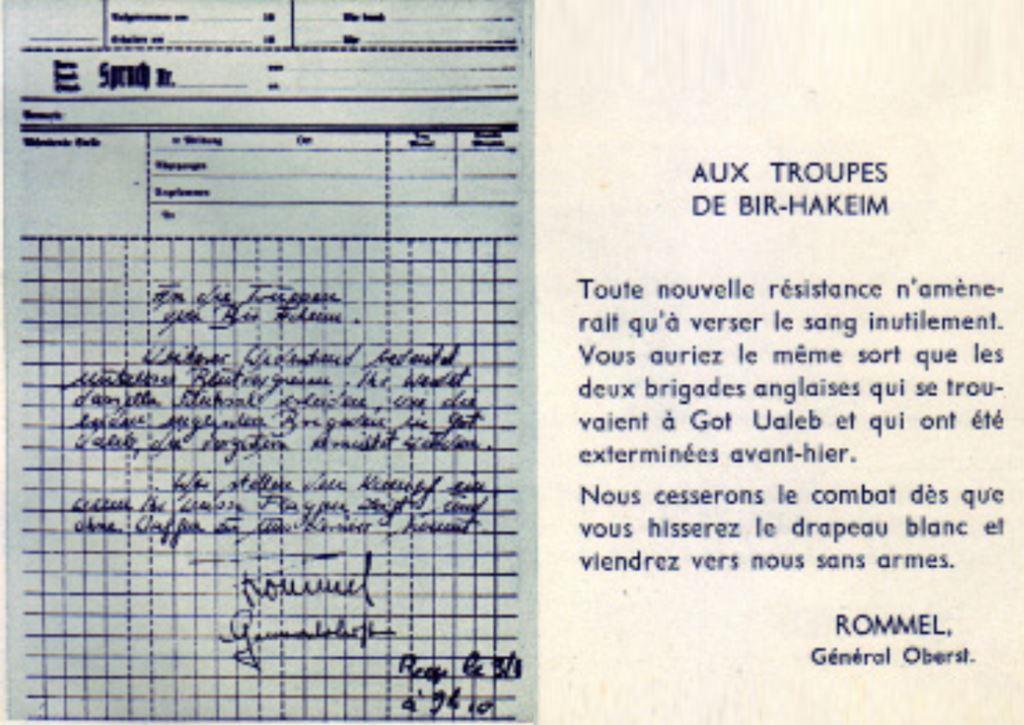 Spruch Nr.
An die Truppen
von Bir Hakeim.
Weiterer Widerstand bedeutet
nutzloses Blutvergiessen. Ihr werdet
dasselbe Schicksal erleiden, wie die
beiden englischen Brigaden in Got
Ualeb, die vorgestern vernichtet wurden.
Wir stellen den Kampf ein
wenn Ihr weisse Flaggen zeigt und
ohne Waffen zu uns herüber kommt.
Rommel
Generaloberst
Reçu le 3/6
à 9h 10
AUX TROUPES
DE BIR-HAKEIM
Toute nouvelle résistance n'amène-
rait qu'à verser le sang inutilement.
Vous auriez le même sort que les
deux brigades anglaises qui se trou-
vaient à Got Ualeb et qui ont été
exterminées avant-hier.
Nous cesserons le combat dès que
vous hisserez le drapeau blanc et
viendrez vers nous sans armes.
ROMMEL,
Général Oberst.